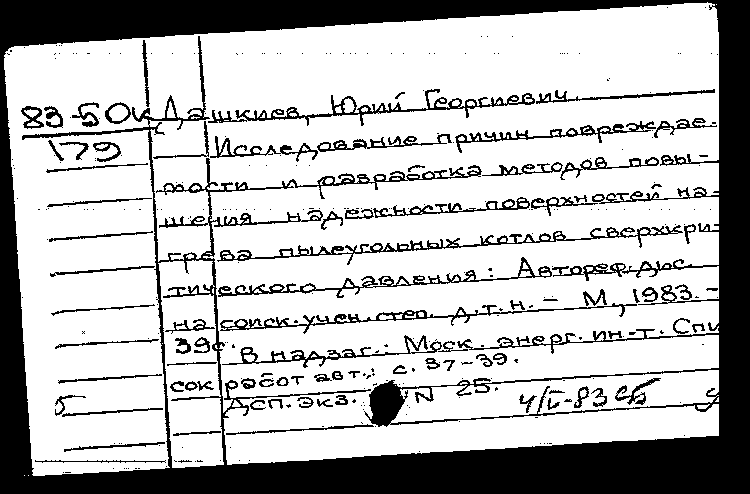 83-5 Ок Дашкиев, Юрий Георгиевич.
179 Исследование причин повреждае-
мости и разработка методов повы-
шения надежности поверхностей на-
грева пылеугольных котлов сверхкри-
тического давления: Автореф. дис.
на соиск. учен. степ. д.т.н. - М., 1983. -
39с. В надзаг.: Моск. энерг. ин-т. Спи
сок работ авт.: с. 37-39.
5 ДСП. Экз. N 25.